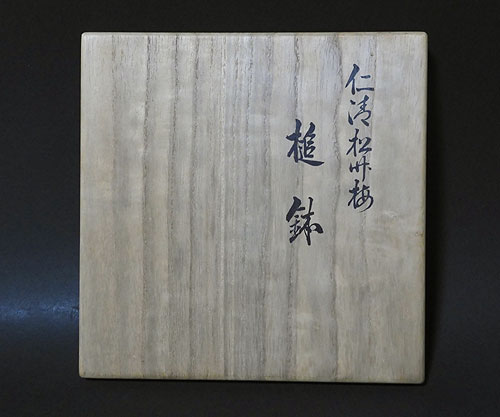 仁清松竹梅
槌鉢